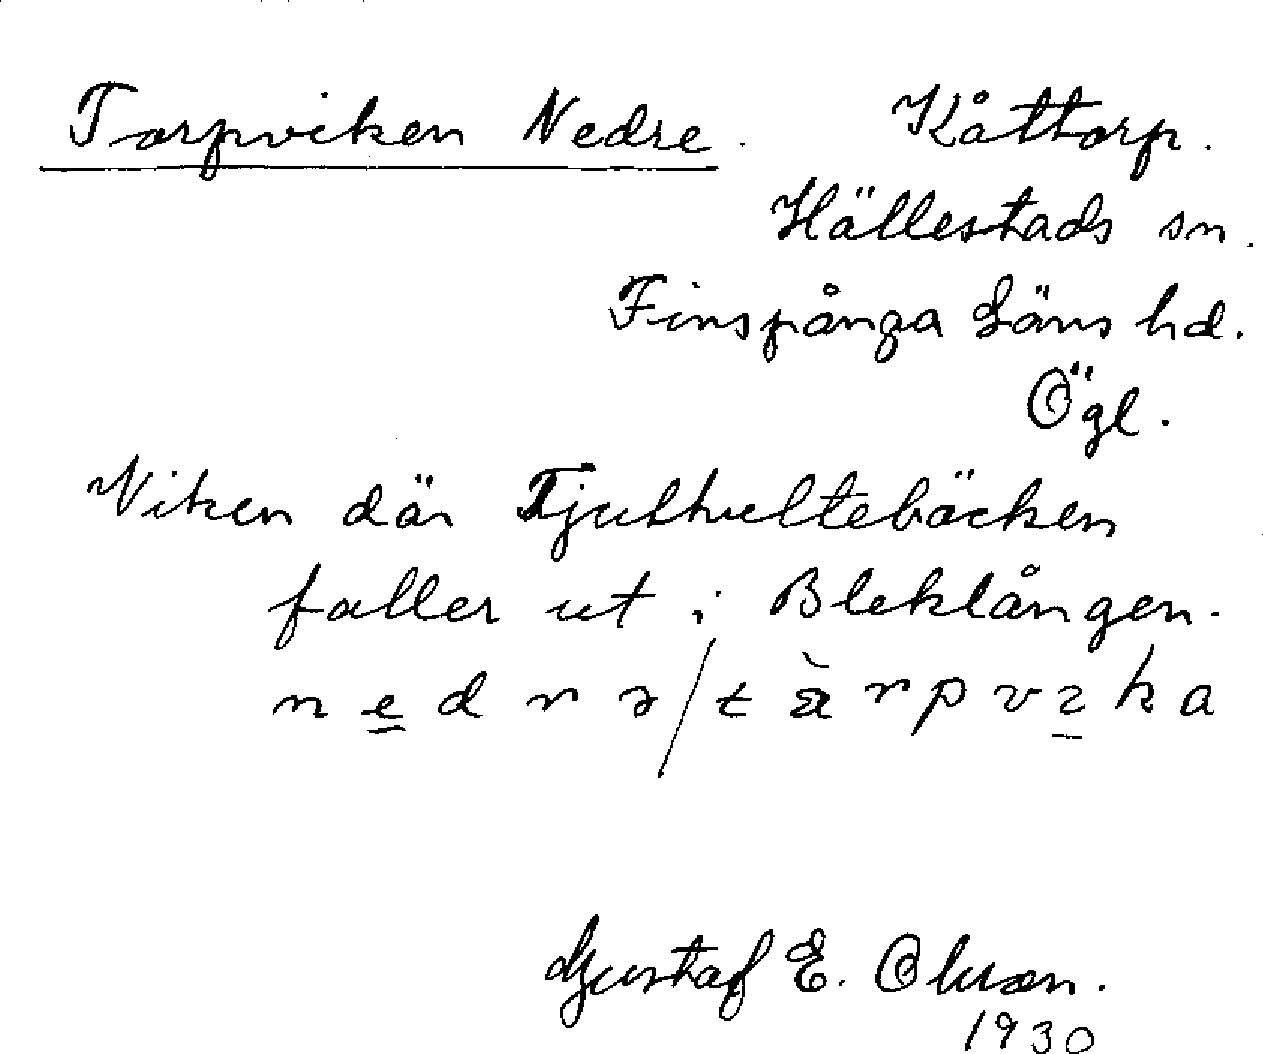 Torpviken Nedre. Kåttorp.
Hällestads sn.
Finspånga Läns hd.
Ögl.
Viken där Tjuthultebäcken
faller ut i Bleklången.
Gustaf E. Olsson.
1930